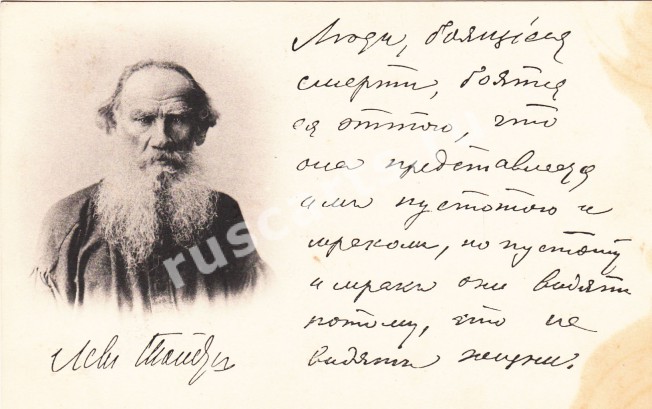 Люди, боящіеся
смерти, боятся
ея оттого, что
она представляется
имъ пустотою и
мракомъ, но пустоту
и мракъ они видятъ
потому, что не
видятъ жизни.
Левъ Толстой